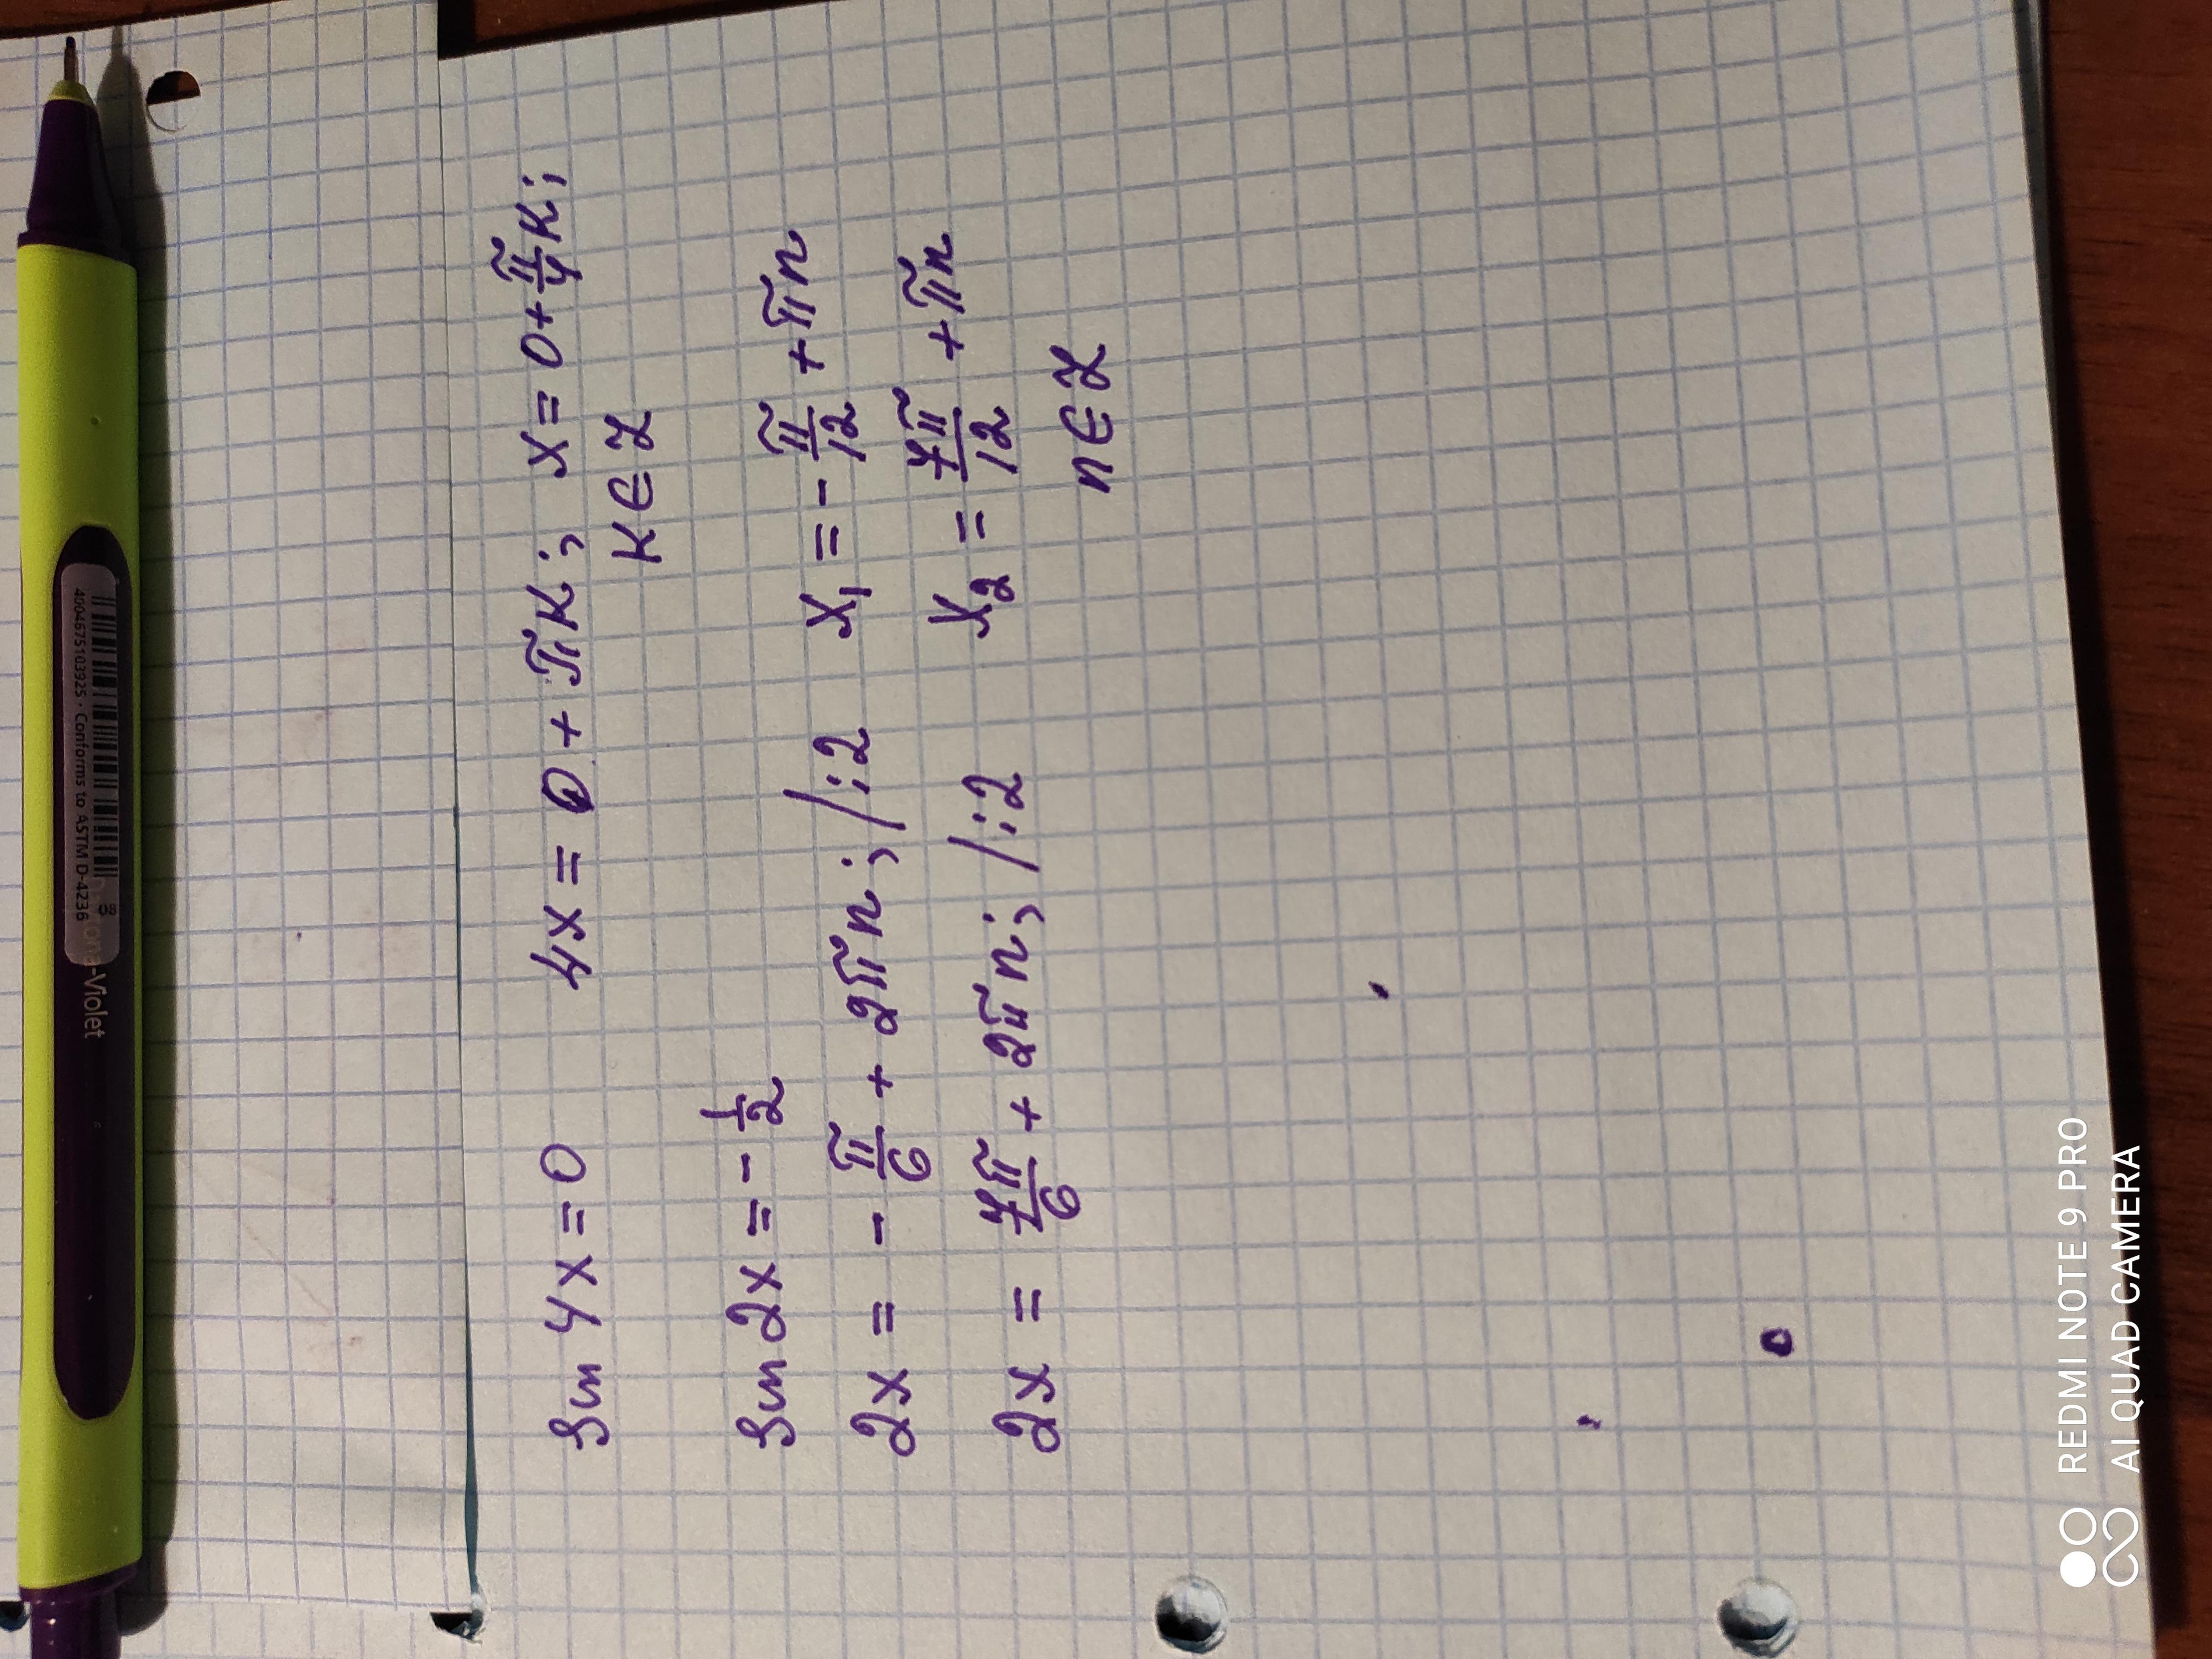 sin 4x = 0    4x = 0 + πk;  x = 0 + π/4 k;
k ∈ Z
sin 2x = - 1/2
2x = - π/6 + 2πn; /:2    x₁ = - π/12 + πn
2x = 7π/6 + 2πn; /:2    x₂ = 7π/12 + πn
n ∈ Z
4004675103925 · Conforms to ASTM D-4236
-Violet
REDMI NOTE 9 PRO
AI QUAD CAMERA